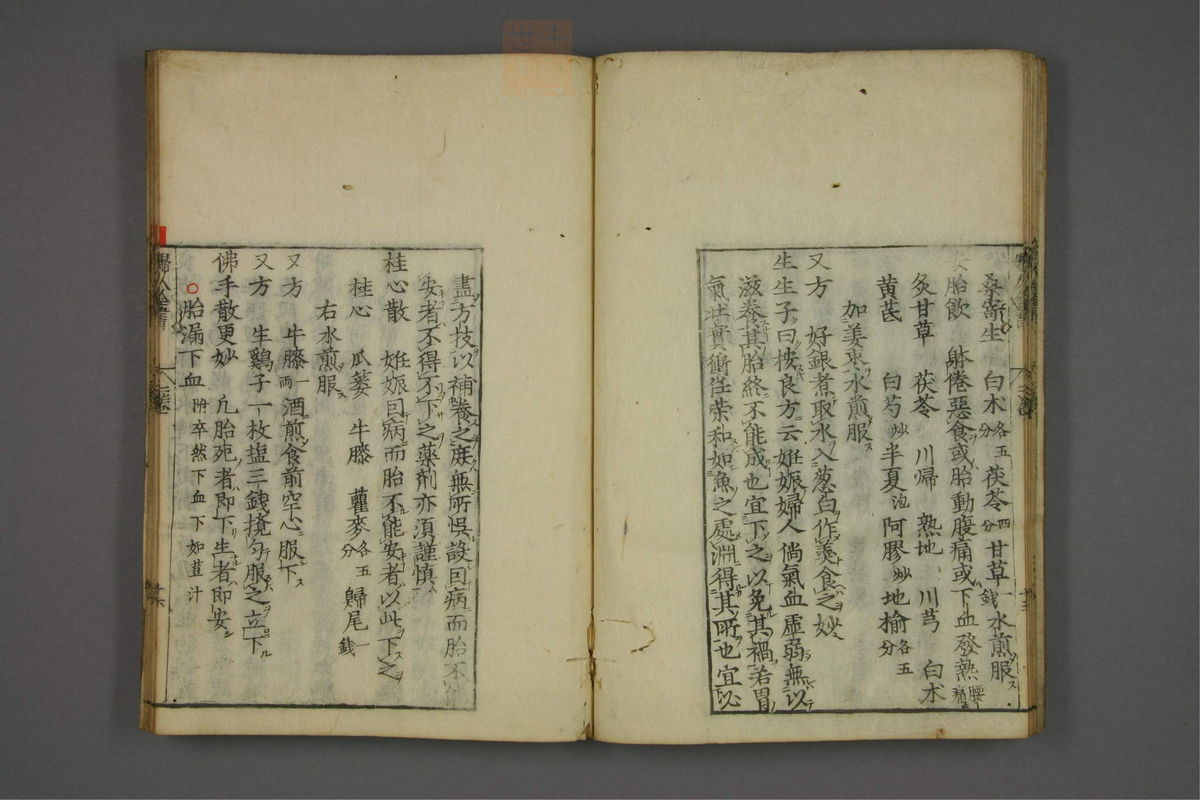 桑寄生 白朮各五分 茯苓四分 甘草一錢 水煎服ス
安胎飲 躰倦惡食或胎動腹痛或下血發熱腰痛
炙甘草 茯苓 川帰 熟地 川芎 白朮
黄茋 白芍炒 半夏泡 阿膠炒 地榆各五分
加姜枣水煎服ス
又方 好銀煮取水入葱白作羮食之妙
生生子曰按良方云妊娠婦人倘氣血虚弱無以
滋養其胎終不能成也宜下之以免其禍若胃
氣壮實衝任荣和如魚之處淵得其所也宜必
盡方技以補養之庭無所悞設囙病而胎不能
安者不得不下之藥剤亦須謹慎
桂心散 妊娠囙病而胎不能安者以此下之
桂心 瓜蒌 牛膝 瞿麥各五分 歸尾一錢
右水煎服ス
又方 牛膝一両 酒煎食前空心服下ス
又方 生鷄子一枚塩三銭撓匀服之立下
佛手散更妙 凢胎死者即下生者即安
○胎漏下血 附卒然下血下如荳汁